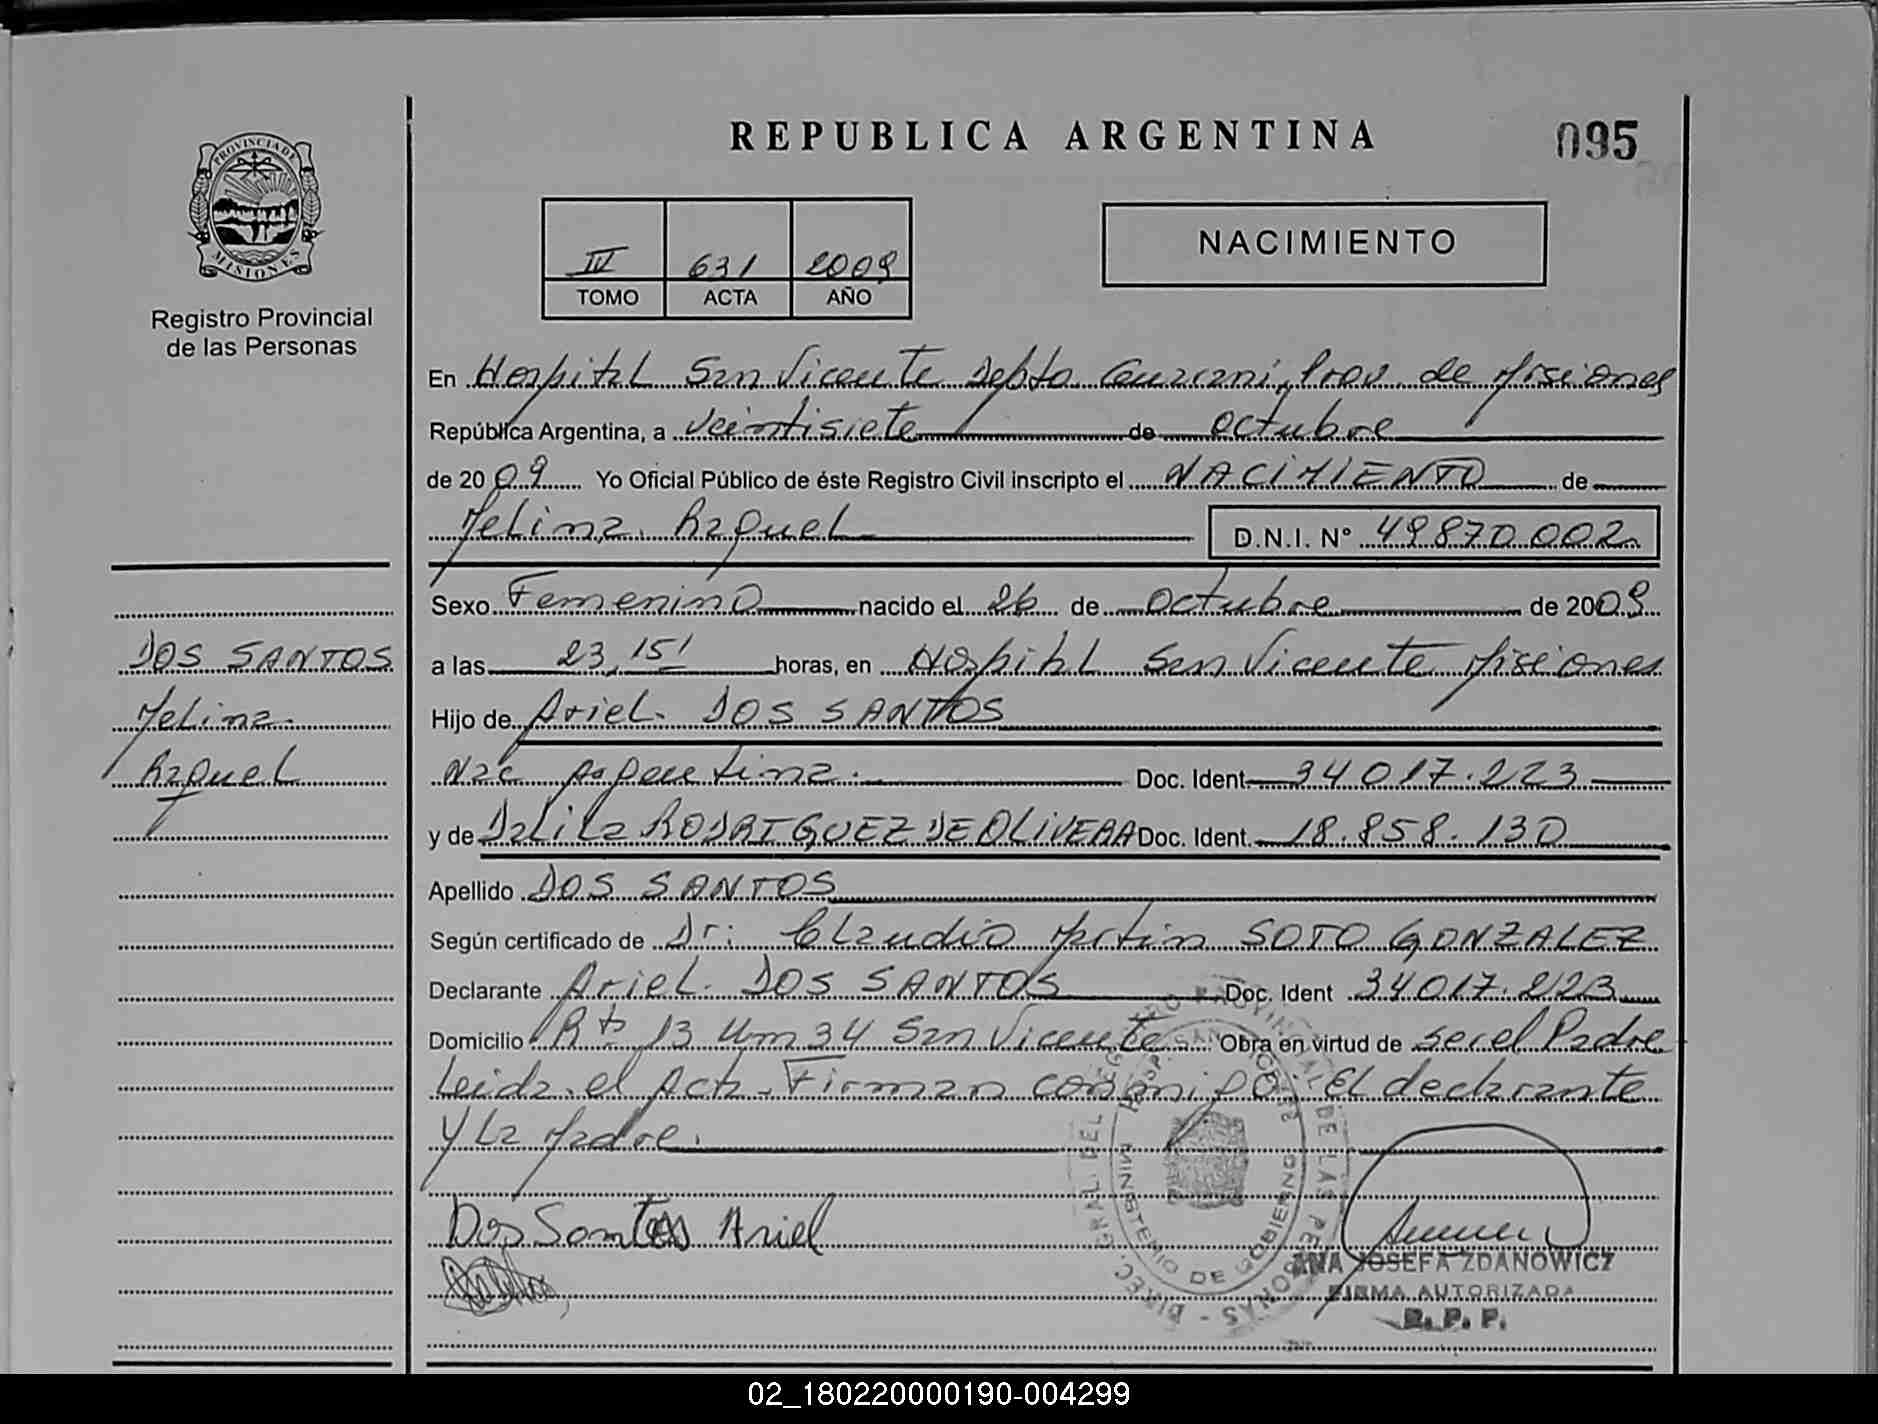 PROVINCIA DE
MISIONES
Registro Provincial
de las Personas
DOS SANTOS
Melina
Raquel
REPUBLICA ARGENTINA
095
IV 631 2009
TOMO ACTA AÑO
NACIMIENTO
En Hospital San Vicente Depto Guarani, Prov. de Misiones
República Argentina, a veintisiete de octubre
de 2009 Yo Oficial Público de éste Registro Civil inscripto el NACIMIENTO de
Melina Raquel
D.N.I. Nº 49870.002
Sexo Femenino nacido el 26 de Octubre de 2009
a las 23,15' horas, en Hospital San Vicente Misiones
Hijo de Ariel DOS SANTOS
Nac Argentina Doc. Ident. 34017.223
y de Dalila RODRIGUEZ DE OLIVERA Doc. Ident. 18.858.130
Apellido DOS SANTOS
Según certificado de Dr: Claudio Martin SOTO GONZALEZ
Declarante Ariel DOS SANTOS Doc. Ident 34017.223
Domicilio Rta 13 Km 34 San Vicente Obra en virtud de ser el Padre
Leida el Acta Firman conmigo: El declarante
y La Madre.
Dos Santos Ariel
DIREC. GRAL. DEL REGISTRO PROVINCIAL DE LAS PERSONAS
HOSP. SAN VICENTE
MINISTERIO DE GOBIERNO
ANA JOSEFA ZDANOWICZ
FIRMA AUTORIZADA
R. P. P.
02_180220000190-004299